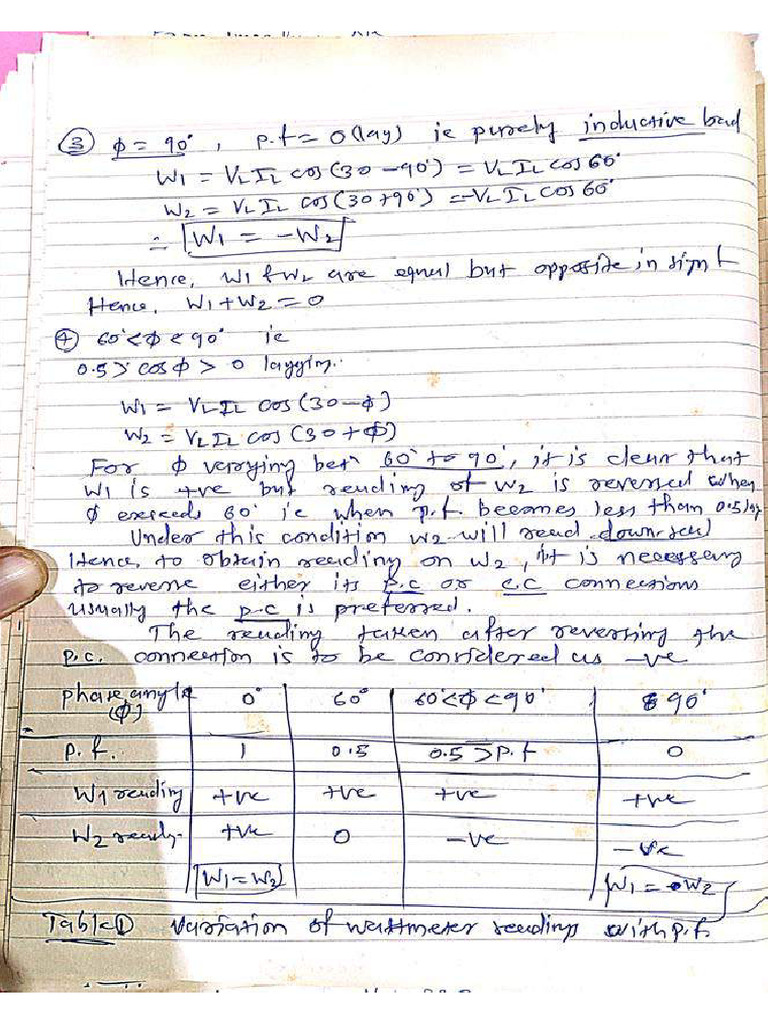 ③ ϕ = 90°, p.f = 0 (lag) ie purely inductive load
W1 = VL IL cos (30 - 90°) = VL IL cos 60°
W2 = VL IL cos (30 + 90°) = -VL IL cos 60°
∴ W1 = -W2
Hence, W1 & W2 are equal but opposite in sign
Hence, W1 + W2 = 0
④ 60° < ϕ < 90° ie
0.5 > cos ϕ > 0 lagging.
W1 = VL IL cos (30 - ϕ)
W2 = VL IL cos (30 + ϕ)
For ϕ varying betn 60° to 90°, it is clear that
W1 is +ve but reading of W2 is reversed when
ϕ exceeds 60° ie when p.f. becomes less than 0.5 lag
Under this condition W2 will read down scal
Hence, to obtain reading on W2, it is necessary
to reverse either its p.c or c.c connections
usually the p.c is preferred.
The reading taken after reversing the
p.c. connection is to be considered as -ve
phase angle (ϕ) 0° 60° 60° < ϕ < 90° 90°
p.f. 1 0.5 0.5 > p.f 0
W1 reading +ve +ve +ve +ve
W2 readg. +ve 0 -ve -ve
W1 = W2 W1 = -W2
Table ① Variation of wattmeter readings with p.f.